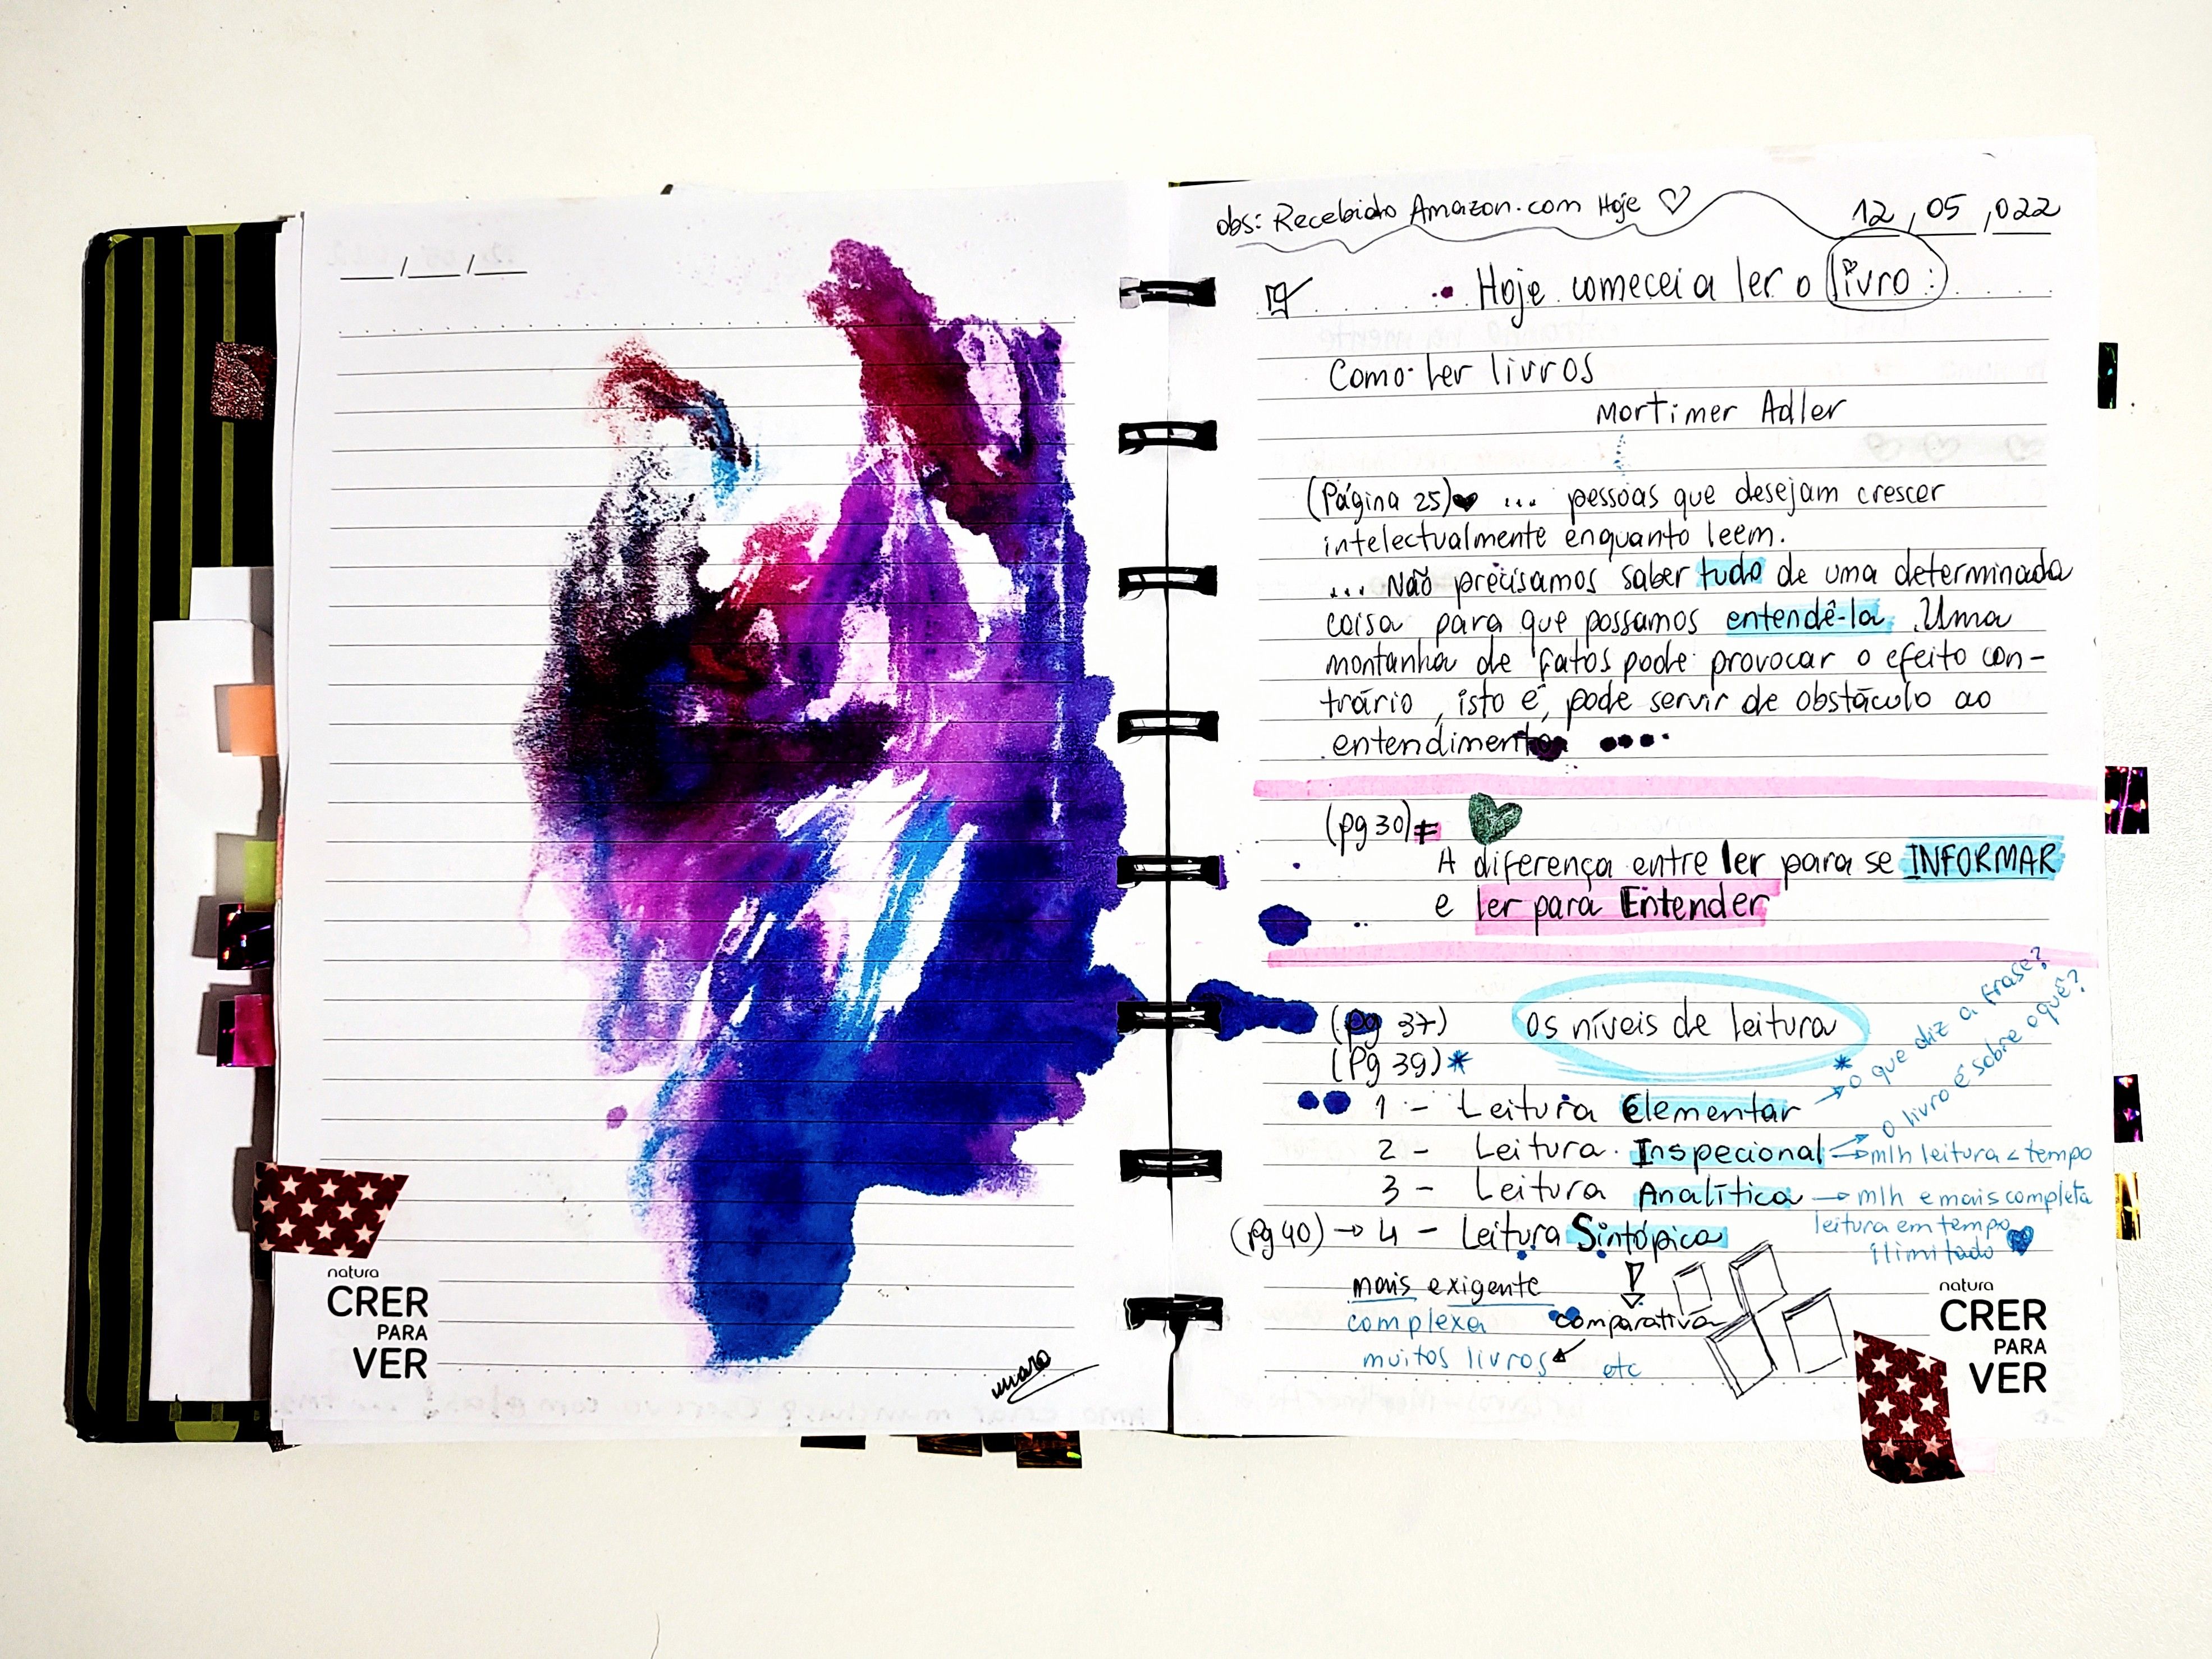 ___/___/___
natura
CRER
PARA
VER
obs: Recebido Amazon.com Hoje ♡
12, 05, 022
• Hoje comecei a ler o livro:
Como ler livros
Mortimer Adler
(Página 25)♥ ... pessoas que desejam crescer
intelectualmente enquanto leem.
... Não precisamos saber tudo de uma determinada
coisa para que possamos entendê-la. Uma
montanha de fatos pode provocar o efeito con-
trário, isto é, pode servir de obstáculo ao
entendimento
(pg 30)
A diferença entre ler para se INFORMAR
e ler para Entender
(pg 37) Os níveis de leitura
(Pg 39)*
1 - Leitura Elementar → * o que diz a frase?
2 - Leitura Inspecional → o livro é sobre o quê?
→ mlh leitura < tempo
3 - Leitura Analítica → mlh e mais completa
leitura em tempo
ilimitado ♥
(pg 40) → 4 - Leitura Sintópica
mais exigente
complexa comparativa
muitos livros etc
natura
CRER
PARA
VER